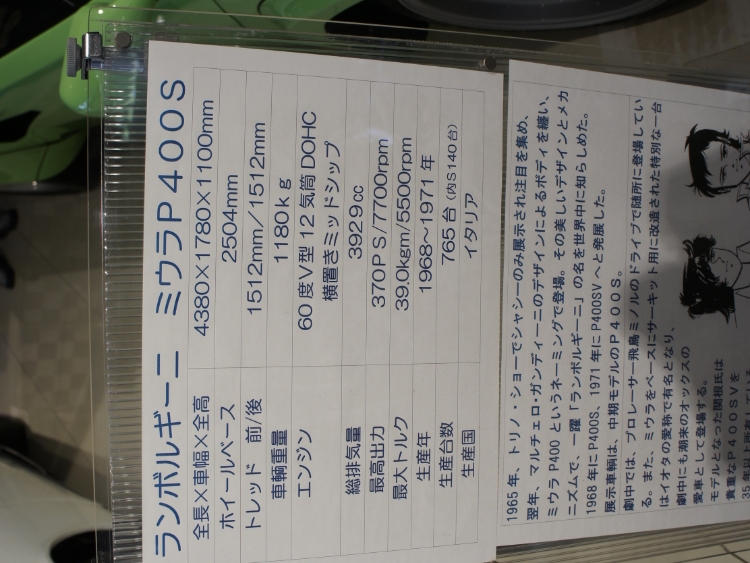 ランボルギーニ ミウラP400S
全長×車幅×全高 4380×1780×1100mm
ホイールベース 2504mm
トレッド 前/後 1512mm/1512mm
車輌重量 1180kg
エンジン 60度V型12気筒DOHC
横置きミッドシップ
総排気量 3929cc
最高出力 370PS/7700rpm
最大トルク 39.0kgm/5500rpm
生産年 1968~1971年
生産台数 765台(内S140台)
生産国 イタリア
1965年、トリノ・ショーでシャシーのみ展示され注目を集め、
翌年、マルチェロ・ガンディーニのデザインによるボディを纏い、
ミウラP400というネーミングで登場。その美しいデザインとメカ
ニズムで、一躍「ランボルギーニ」の名を世界中に知らしめた。
1968年にP400S、1971年にP400SVへと発展した。
展示車輌は、中期モデルのP400S。
劇中では、プロレーサー飛鳥ミノルのドライブで随所に登場してい
る。また、ミウラをベースにサーキット用に改造された特別な一台
はイオタの愛称で有名となり、
劇中にも潮来のオックスの
愛車として登場する。
モデルとなった関根氏は
貴重なP400SVを
35年以上